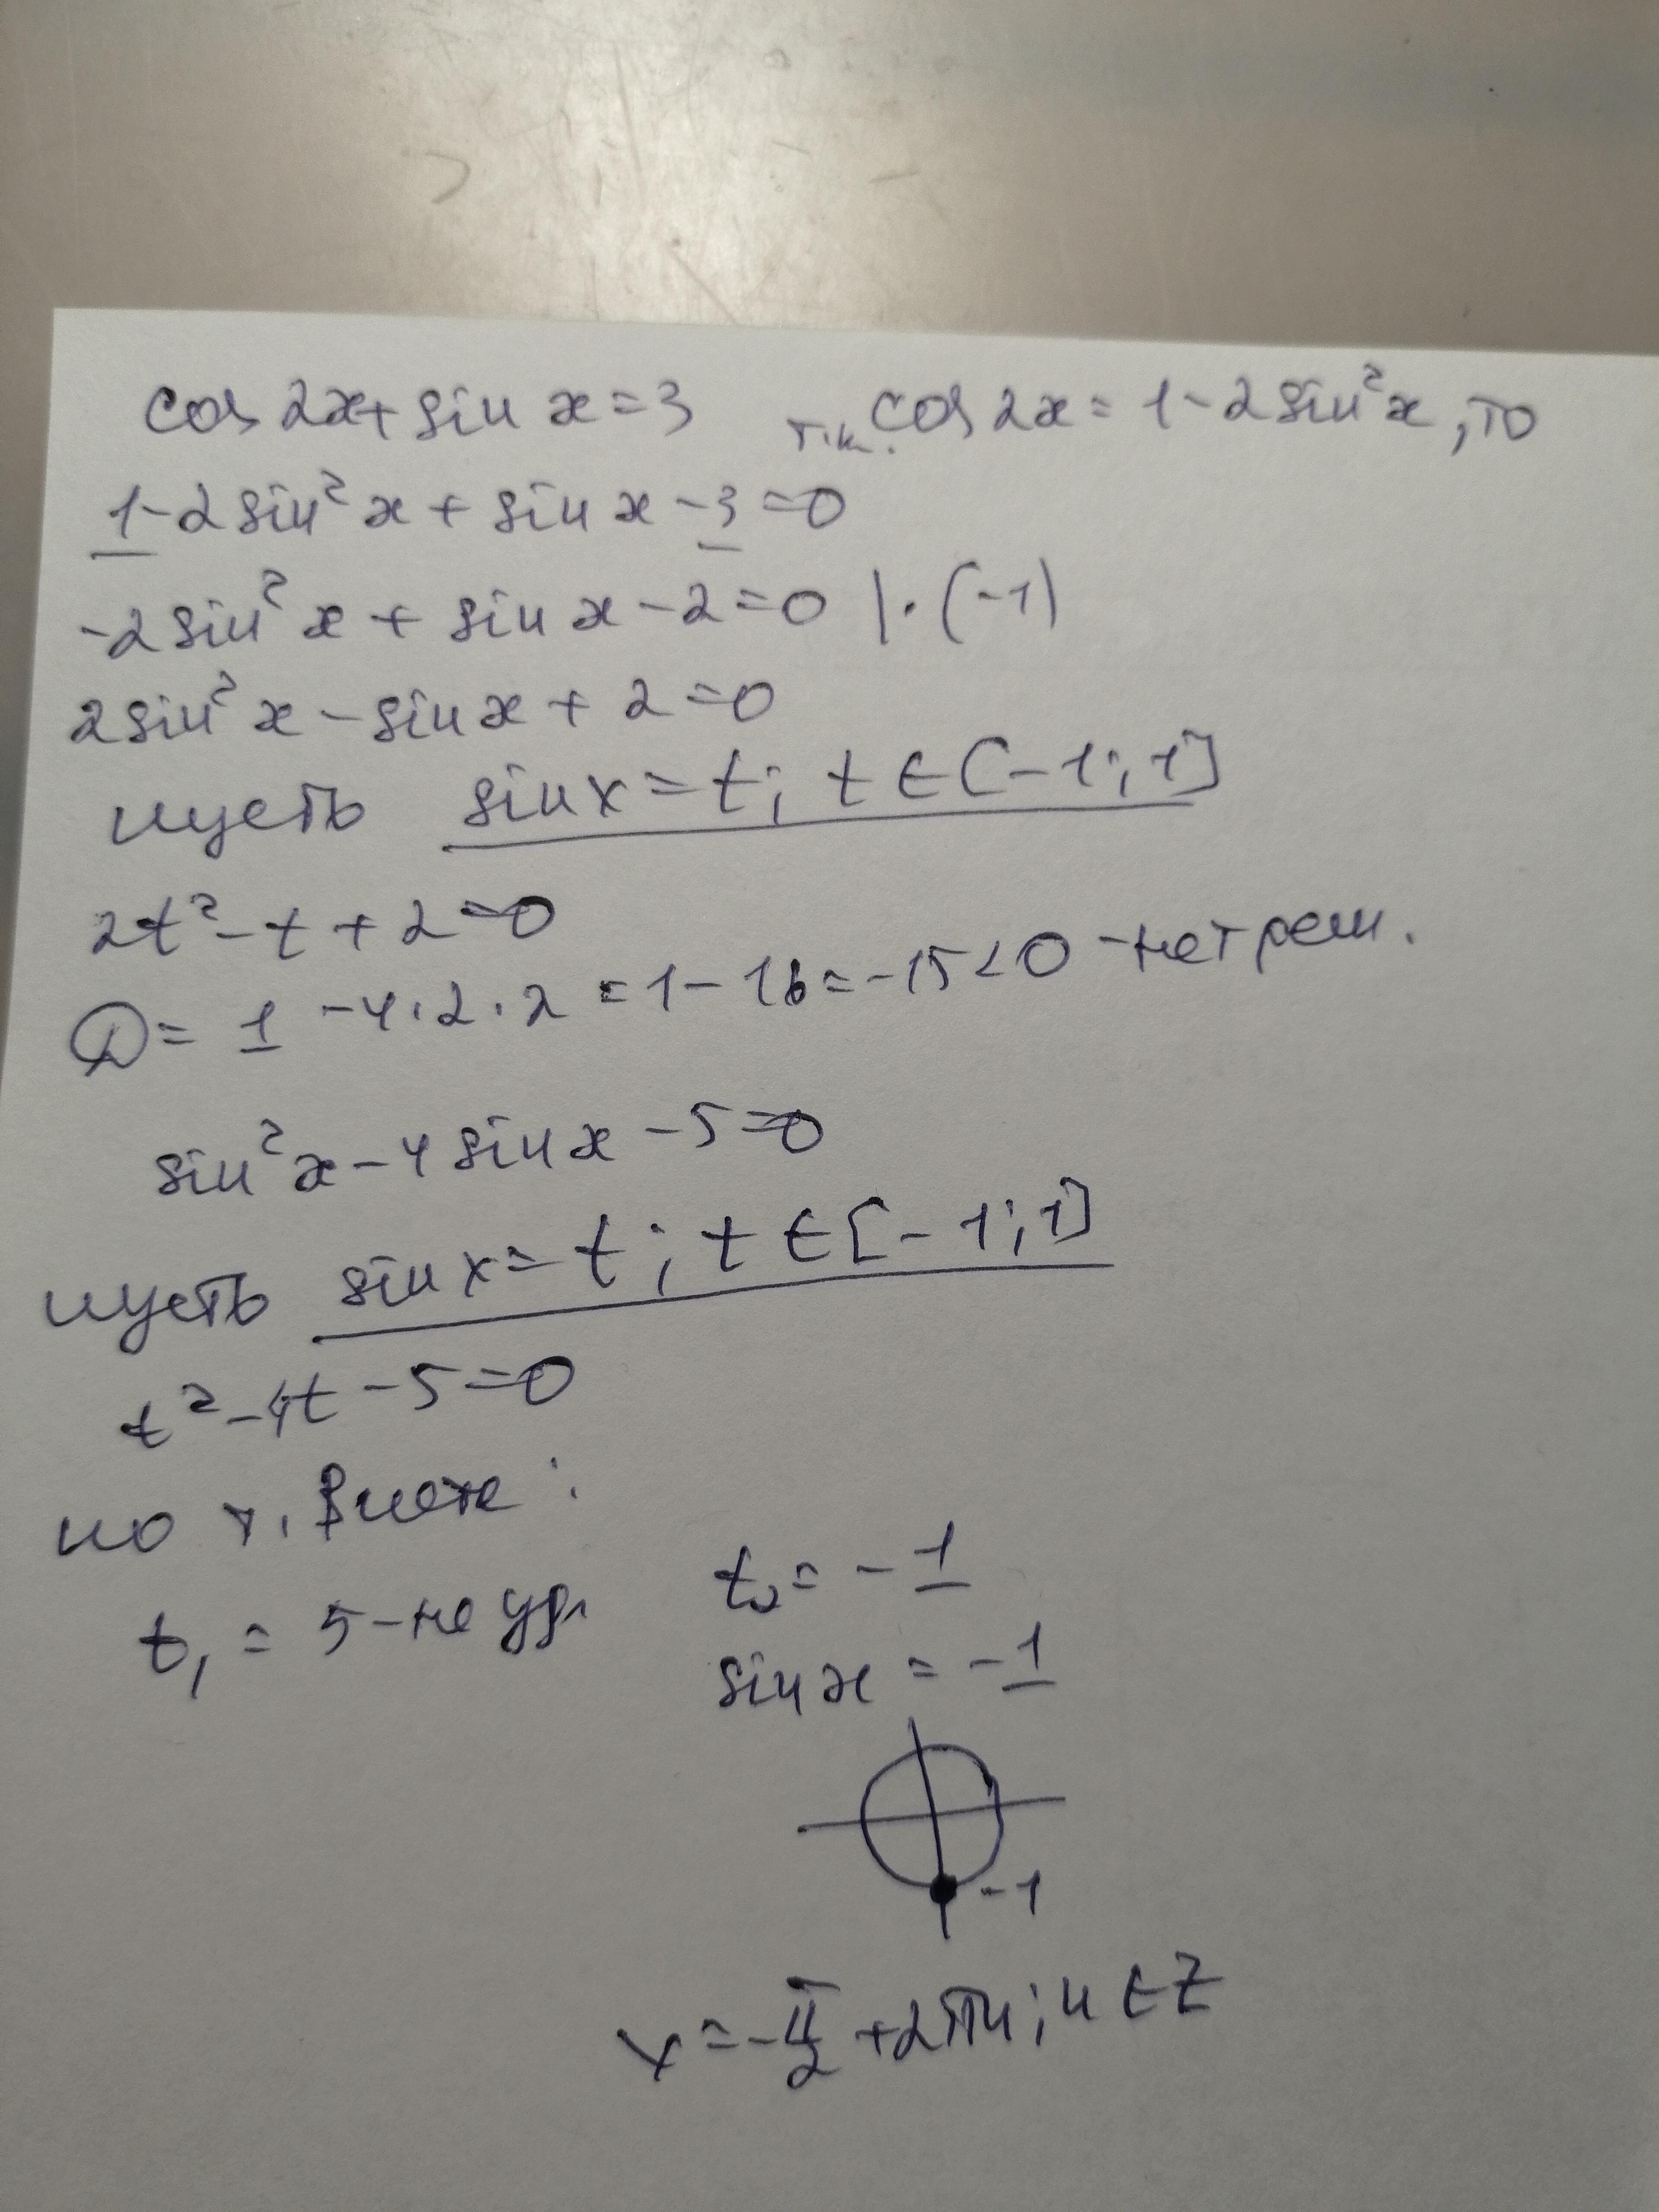 cos 2x + sin x = 3 т.к. cos 2x = 1 - 2 sin² x, то
1 - 2 sin² x + sin x - 3 = 0
-2 sin² x + sin x - 2 = 0 | · (-1)
2 sin² x - sin x + 2 = 0
пусть sin x = t; t ∈ [-1; 1]
2t² - t + 2 = 0
D = 1 - 4 · 2 · 2 = 1 - 16 = -15 < 0 - нет реш.
sin² x - 4 sin x - 5 = 0
пусть sin x = t; t ∈ [-1; 1]
t² - 4t - 5 = 0
по т. Виета:
t₁ = 5 - не уд. t₂ = -1
sin x = -1
-1
x = -π/2 + 2πn; n ∈ Z